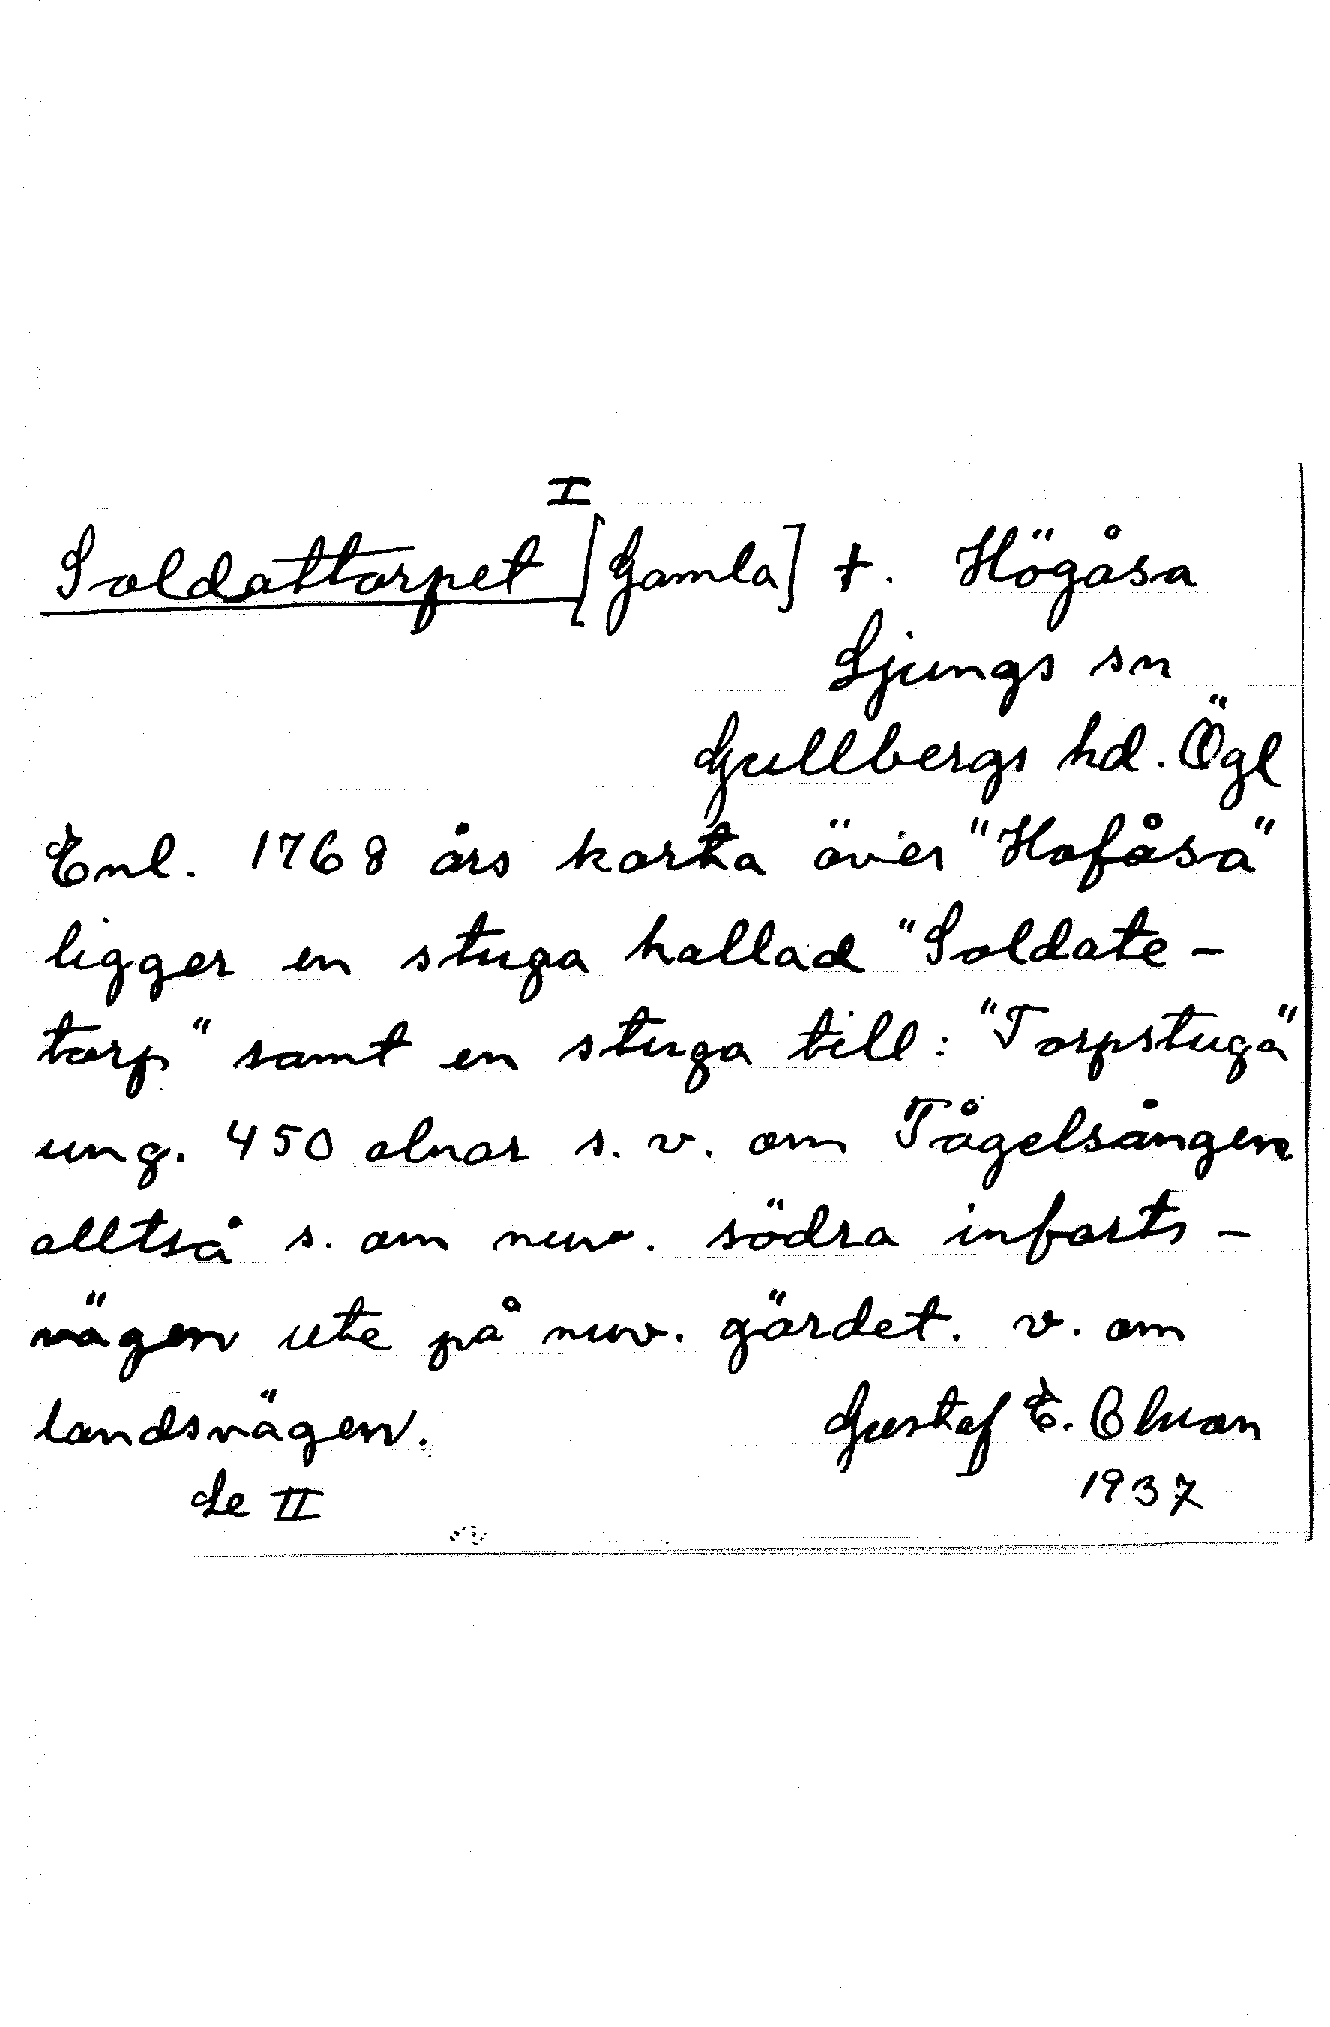 I
Soldattorpet [Gamla] †. Högåsa
Ljungs sn
Gullbergs hd. Ögl
Enl. 1768 års karta över "Hofåsa"
ligger en stuga kallad "Soldate-
torp" samt en stuga till: "Torpstuga"
ung. 450 alnar s. v. om Fågelsången
alltså s. om nuv. södra infarts-
vägen ute på nuv. gärdet. v. om
landsvägen. Gustaf E.
Se II 1937